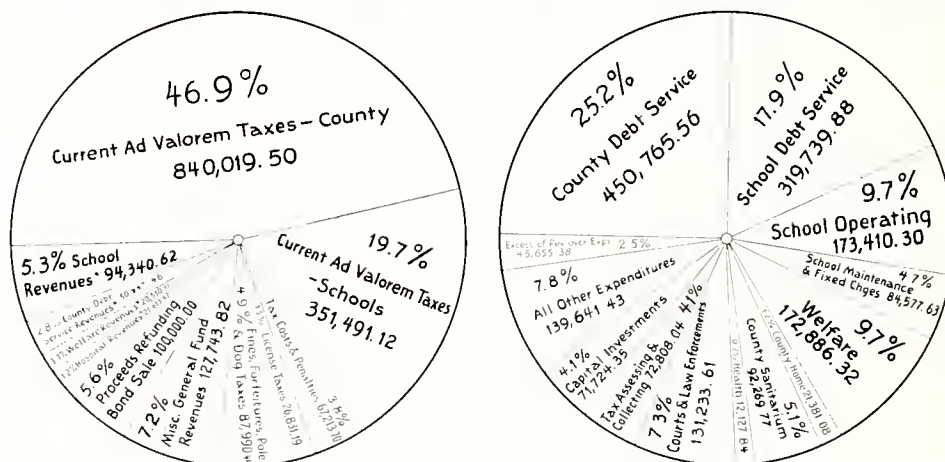 46.9%
Current Ad Valorem Taxes – County
840,019.50
19.7%
Current Ad Valorem Taxes
-Schools
351,491.12
3.8%
Tax Costs & Penalties 67,213.10
License Taxes 26,831.19
4.9% Fines, Forfeitures, Pole
& Dog Taxes 87,990
7.2% Misc. General Fund
Revenues 127,743.82
5.6%
Proceeds Refunding
Bond Sale 100,000.00
Welfare Revenue
County Debt
Service Revenues
5.3% School
Revenues 94,340.62
25.2%
County Debt Service
450,765.56
17.9%
School Debt Service
319,739.88
9.7%
School Operating
173,410.30
4.7%
School Maintenance
& Fixed Chges 84,577.63
9.7%
Welfare
172,886.32
County Home 21,381.08
5.1%
County Sanitarium
92,269.77
Health 12,127.84
7.3%
Courts & Law Enforcements
131,233.61
Tax Assessing &
Collecting 72,808.04 4.1%
4.1%
Capital Investments
71,724.35
7.8%
All Other Expenditures
139,641.43
Excess of Rev over Exps 2.5%
45,655.38